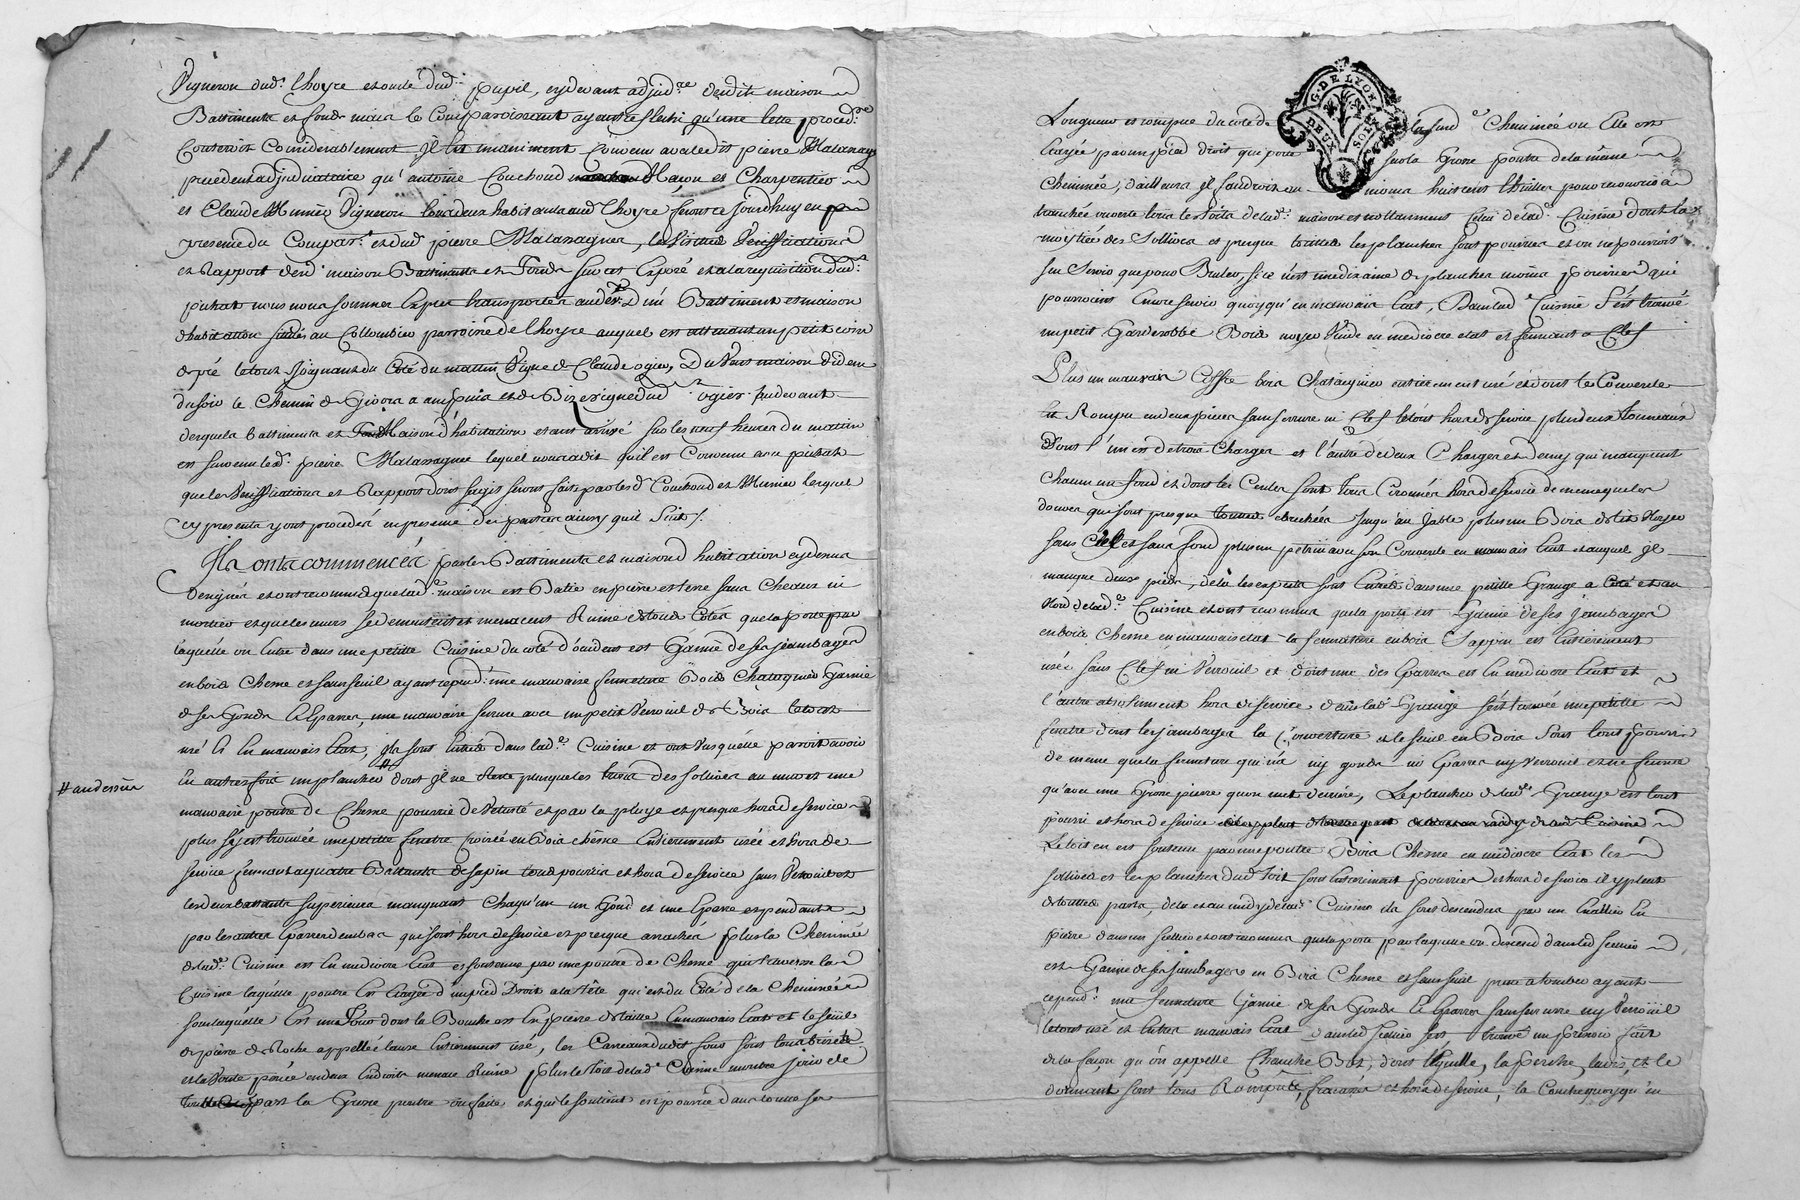 Vigneron dud. lhoyre et oncle dud. pupil, cydevant adjud.re desdits maison
Battiments et fonds mais le Comparoissant ayant reflechi qu'une telle procedre
Couteroit Considerablement Il est maniment Convenu avec ledit pierre Malassagne
precedent adjudicataire qu'antoine Couchoud Maçon et Charpentier
et Claude Munier Vigneron tous deux habitants aud. lhoyre feront ce jourdhuy en
presence du Compar.t et dud. pierre Malassagne, les Visittes Veriffications
et Rapport desd. maison Battiments et Fonds sur cet Exposé et a la requisition dud.
pichat nous nous sommes Expres transportés audevt D'un Battiment et maison
d'habitation situés au Collombier parroisse de lhoyre auquel est attenant un petit coin
de pré le tout Joignant du Coté du mattin Vigne de Claude ogier, Du Vent maison
du soir le Chemin de Givors a ampuis et de Bize vigne dud. ogier Audevant
desquels battiments et Maison d'habitation etant arrivé sur les neuf heures du mattin
est survenu led. pierre Malassagne lequel nous a dit qu'il est Convenu avec pichat
que les Veriffications et Rapport dont s'agit seront faits par lesd. Couchoud et Munier lesquels
cy presents y ont procedés en presence des parties ainsy qu'il suit /.
Ils onts commencés par les Battiments et maison d'habitation cydevant
designés et ont reconnu que lad.e maison est Batie en pierre et terre sans Cheaux ni
mortier et que les murs se dementent et menacent Ruine de tous Cotés que la porte par
laquelle on Entre dans une petitte Cuisine du coté d'occident est Garnie de ses jambages
en bois Chesne et sans seuil ayant cepend.t une mauvaise fermeture Bois Chataignier Garnie
de ses Gonds et Eparres, une mauvaise serrure avec un petit Verrouil de Bois le tout
usé et En mauvais Etat, Ils sont Entrés dans lad.e Cuisine et ont Vu quelle paroit avoir
Eu autresfois un plancher # dont Il ne Reste plus que les trois des sollives au mur et une
# au dessus
mauvaise poutre de Chesne pourrie de Vetusté et par la pluye et presque hors de service
plus s'y est trouvée une petitte fenetre Croisée en Bois chêsne Entierement usée et hors de
service fermant a quatre Battants de sapin tous pourris et hors de service sans Verrouil et
les deux battants superieurs manquant Chaqu'un un Gond et une Eparre et pendants
par les autres Eparres d'embas qui sont hors de service et presque arrachés plus la Cheminée
de lad.e Cuisine est En mediocre Etat et soutenue par une poutre de Chesne qui traverse la
Cuisine laquelle poutre Est Etayée d'un pied Droit a la Tête qui est du Coté de la Cheminée
sous laquelle Est un Four dont la Bouche est En pierre de taille En mauvais Etat et le seuil
de pierre de Roche appellée lauze Entierement usé, les Carreaux dudit four sont tous brisés
et la Voute percée en deux Endroits menace Ruine plus le toit de lad.e Cuisine
part la Grosse poutre ou faite et qui le soutient est pourrie dans toutte sa
G. DE LYON
DEUX SOLS
Longueur et rompue du coté de la susd.e Cheminée ou Elle est
Etayée par un pied droit qui porte sur la Grosse poutre de la même
Cheminée, d'ailleurs Il faudroit au moins huit cent thuilles pour recourir a
tranchée ouverte tous les toits de lad.e maison et nottamment Celui de lad.e Cuisine dont la
moitiée des Sollives et presque touttes les planches sont pourries et on ne pourroit
s'en Servir que pour Bruler, si ce n'est une dixaine de planches moins pourries qui
pourroient Encore servir quoyqu'en mauvais Etat, Dans lad.e Cuisine s'est trouvé
un petit Garderobbe Bois noyer Vuide en mediocre etat et fermant a Clef
Plus un mauvais Coffre bois Chataignier entierement usé et dont le Couvercle
Est Rompu en deux pieces sans serrure ni Clef le tout hors de service plus deux Tonneaux
Dont l'un est de trois Charges et l'autre de deux Charges et demy qui manquent
Chacun un fond et dont les Cercles sont tous Crounés hors de service de meme que les
douves qui sont presque touttes ebrechées Jusqu'au Jable plus un Bois de lit Noyer
sans Ciel et sans fond plus un petrin avec son Couvercle en mauvais Etat et auquel Il
manque deux pieds, de la les experts sont Entrés dans une petitte Grange a Coté et au
Nord de lad.e Cuisine et ont reconnu que la porte est Garnie de ses Jambages
en bois Chesne en mauvais etat la fermeture en bois Sappin est Entierement
usée sans Clef ni Verrouil et dont une des Eparres est En mediocre Etat et
l'autre absolument hors de service, dans lad.e Grange s'est trouvée une petitte
fenetre dont les jambages la Couverture et le seuil en Bois sont tous pourris
de meme que la fermeture qui n'a ny gonds ni Eparres ny Verrouil et ne ferme
qu'avec une Grosse pierre qu'on met derriere, Le plancher de lad.e Grange est tout
pourri et hors de service
Le toit en est soutenu par une poutre Bois Chesne en mediocre Etat les
sollives et les planches dud. toit sont Entierement pourries et hors de service il y pleut
de touttes parts, de la et au midy de lad.e Cuisine ils sont descendus par un Escallier En
pierre dans un sellier et ont reconnu que la porte par laquelle on descend dans led. sellier
est Garnie de ses Jambages en Bois Chesne et sans seuil prete a tomber ayant
cepend.t une fermeture Garnie de ses Gonds Et Eparres sans serrure ny Verrouil
le tout usé et En tres mauvais Etat dans led. sellier s'est trouvé un pressoir fait
de la façon qu'on appelle Chauche Bot, dont l'éguille, la perche, la vis, et le
dormant sont tous Rompus, fracassés et hors de service, la Couche quoyqu'en